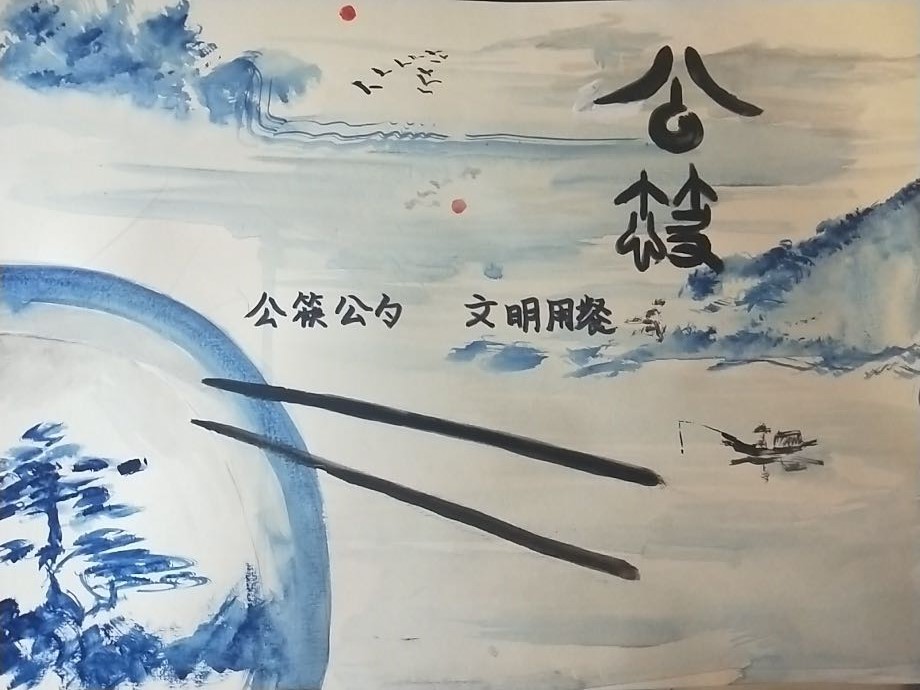 公筷
公筷公勺 文明用餐